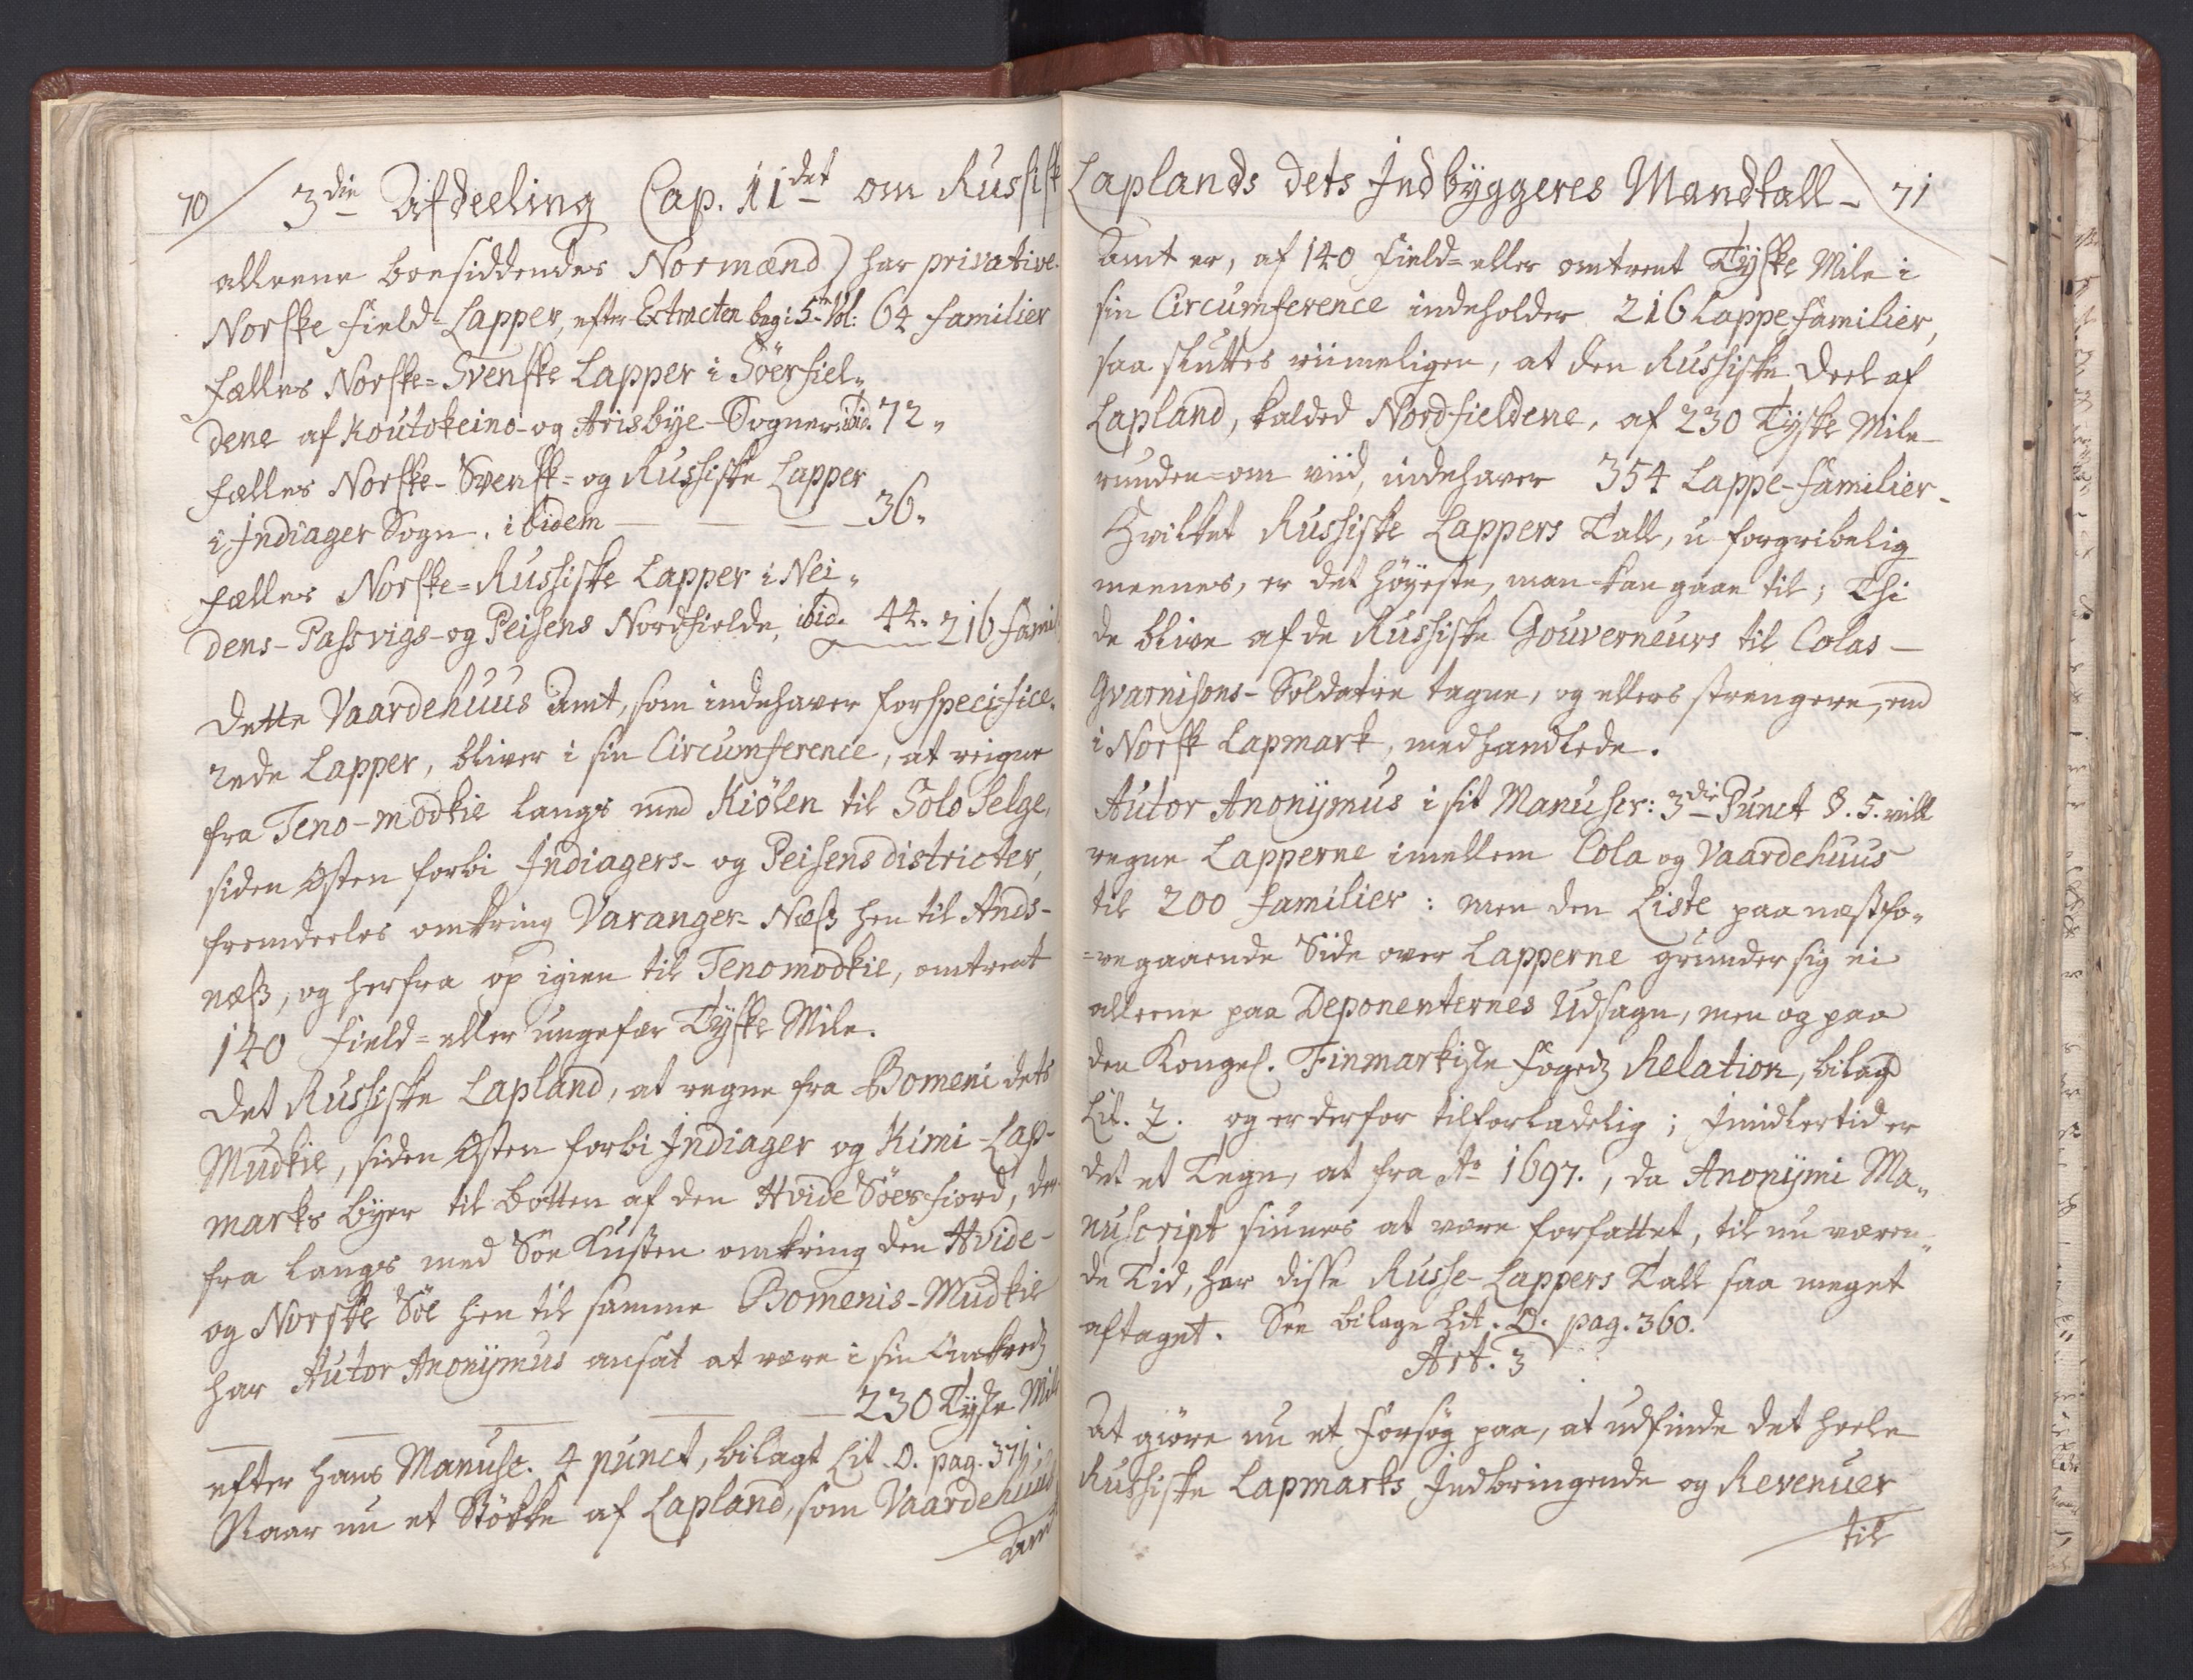 70 3die Afdeeling Cap. 11det om Russisk
alleene boesiddendes Normænd) har privative
Norske Field-Lapper, efter Extracten bag i 5te Vol: 64 familier
Fælles Norske-Svenske Lapper i Söerfiel„
dene af Koutokeino- og Arisbye-Sogner ibid. 72„
Fælles Norske- Svensk- og Russiske Lapper
i Indiager Sogn. ibidem — — — 36„
Fælles Norske-Russiske Lapper i Nei„
dens- Passvigs- og Peisens Nordfielde, ibid. 44„ 216 fami
Dette Vaardehuus Amt, som indehaver forspecifice„
rede Lapper, bliver i sin Circumference, at reigne
fra Teno-modkie langs med Kiölen til Solo Selge,
siden Østen forbi Indiagers- og Peisens districter,
fremdeeles omkring Varanger-Næß hen til Ands-
næß, og herfra op igien til Tenomodkie, omtrent
140 Field- eller ungefær Tyske Mile.
Det Russiske Lapland, at regne fra Bomeni dets
Mudkie, siden Østen forbi Indiager og Kimi-Lap-
marks byer til botten af den Hvide Söes fiord, der
fra langs med Söe Kusten omkring den Hvide-
og Norske Söe hen til samme Bomenis-Mudkie
har Autor Anonÿmus ansat at være i sin Omkredz
— — — 230 Tyske Mile
efter hans Manusc. 4 punct, bilagt Lit. O. pag. 371;
Naar nu et Stökke af Lapland, som Vaardehuus
Amt
Laplands dets Indbÿggeres Mandtall - 71
Amt er, af 140 Field- eller omtrent Tyske Mile i
sin Circumference indeholder 216 Lappe familier,
saa sluttes riimeligen, at den Russiske Deel af
Lapland, kaldes Nordfieldene, af 230 Tyske Mile
runden-om viid, indehaver 354 Lappe-familier-
Hvilket Russiske Lappers Tall, u-forgribelig
meenes, er det høyeste, man kan gaae til; Thi
de blive af de Russiske Gouverneurs til Colas-
Gvarnisons-Soldater tagne, og ellers strengere, end
i Norsk Lapmark, medhandlede.
Autor Anonÿmus i sit Manuscr: 3die Punct §. 5. vill
regne Lapperne imellem Cola og Vaardehuus
til 200 familier: men den Liste paa næstfo„
=regaaende Side over Lapperne grunder sig ei
alleene paa Deponenternes Udsagn, men og paa
den Kongel. Finmarkiske Fogedz Relation, bilagd
Lit. Z. og er derfor tilforladelig; Imidlertid er
det et Tegn, at fra Ao 1697., da Anonÿmi Ma„
nuscript siunes at være forfattet, til nu væren„
de Tid, har disse Russe-Lappers Tall saa meget
aftaget. See bilage Lit. O. pag. 360.
Art. 3
At giøre nu et Forsög paa, at udfinde det heele
Russiske Lapmarks Indbringende og Revenuer
til